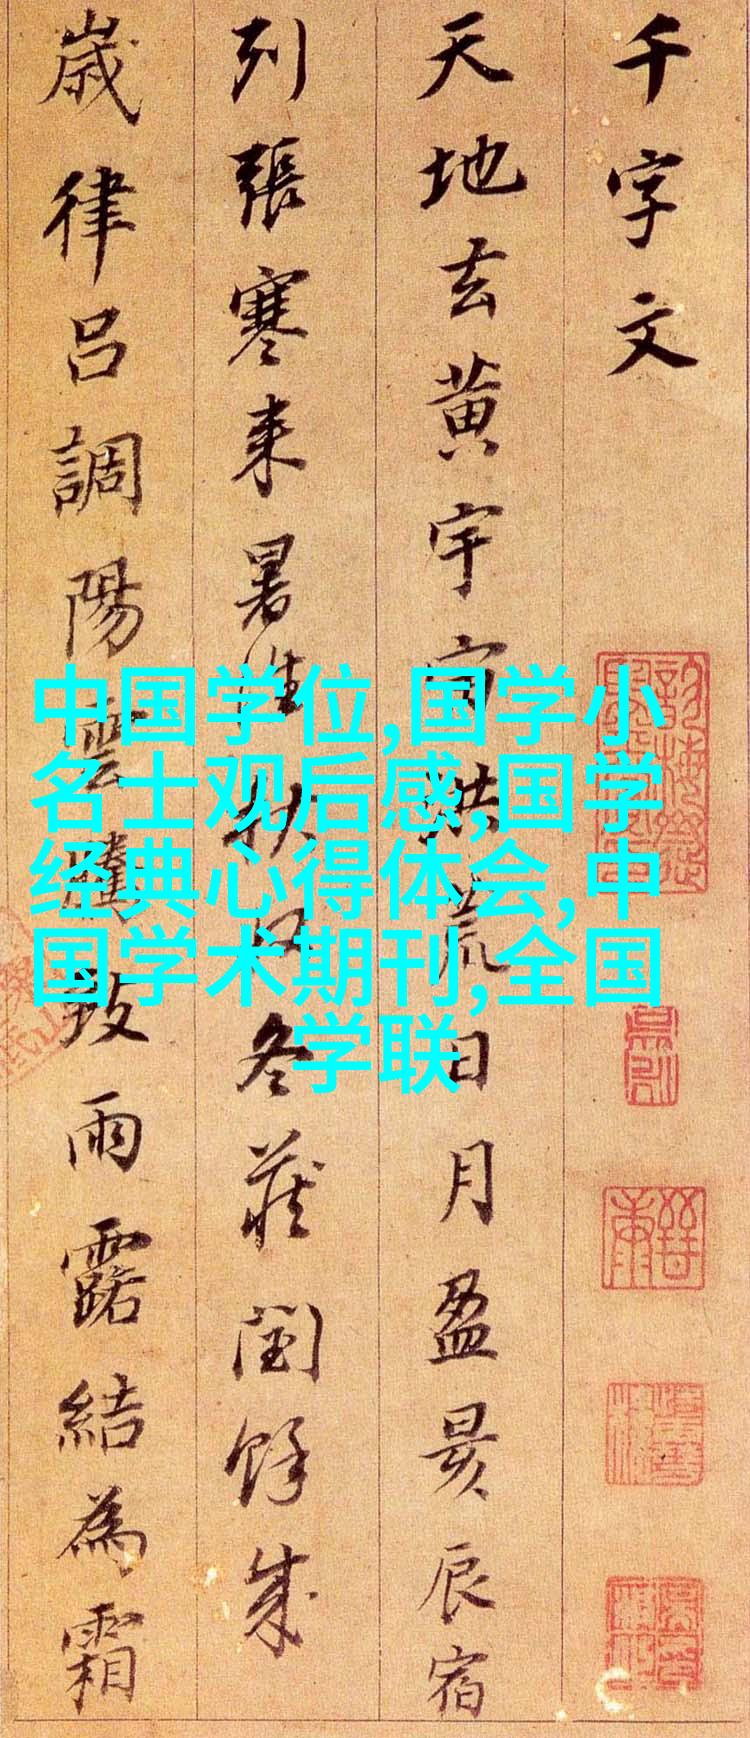 千字文
天地玄黄宇宙洪荒日月盈昃辰宿
列張寒来暑往秋收冬蔵閏餘成
歲律呂調陽雲騰致雨露結為霜
中国学位,国学小
名士观后感,国学
经典心得体会,中
国学术期刊,全国
学联